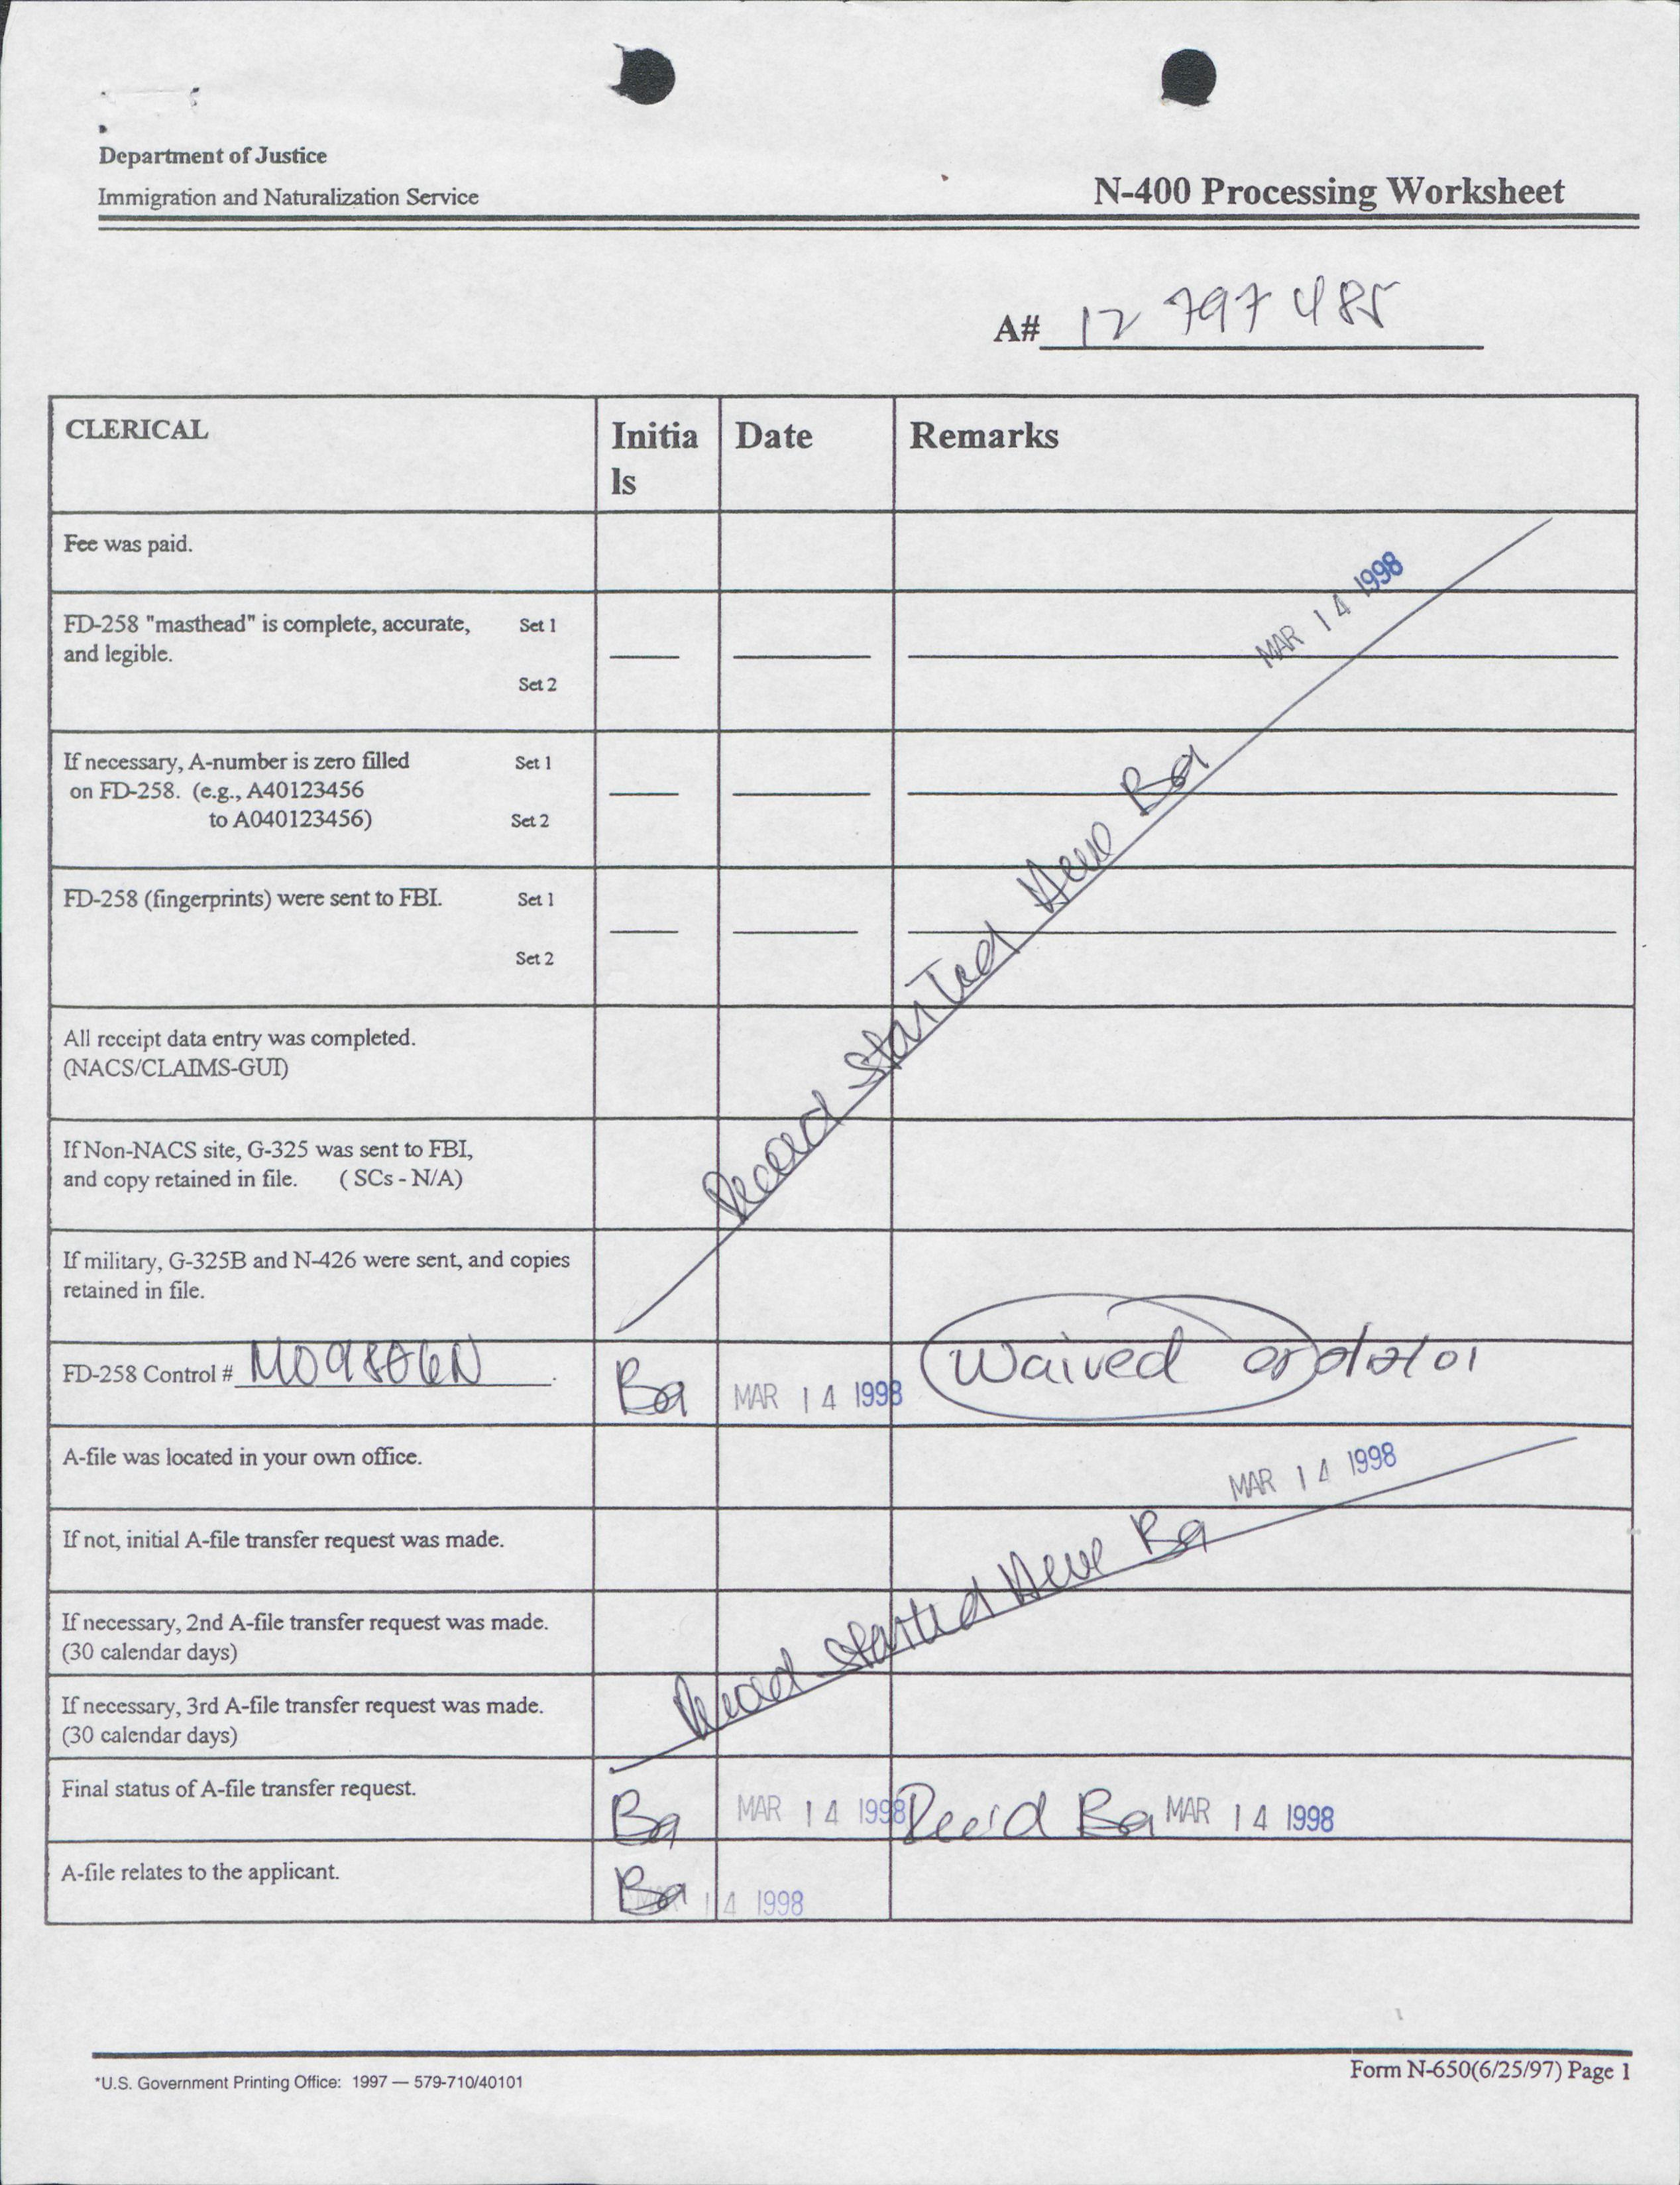 Department of Justice
Immigration and Naturalization Service
N-400 Processing Worksheet
A# 12 797 485
CLERICAL
Initia
ls
Date
Remarks
Fee was paid.
MAR 14 1998
FD-258 "masthead" is complete, accurate, Set 1
and legible.
Set 2
If necessary, A-number is zero filled Set 1
on FD-258. (e.g., A40123456
to A040123456) Set 2
FD-258 (fingerprints) were sent to FBI. Set 1
Set 2
Record Started Here Ba
All receipt data entry was completed.
(NACS/CLAIMS-GUI)
If Non-NACS site, G-325 was sent to FBI,
and copy retained in file. ( SCs - N/A)
If military, G-325B and N-426 were sent, and copies
retained in file.
FD-258 Control # . Ba MAR 14 1998 Waived
A-file was located in your own office.
MAR 14 1998
If not, initial A-file transfer request was made.
Record Started Here Ba
If necessary, 2nd A-file transfer request was made.
(30 calendar days)
If necessary, 3rd A-file transfer request was made.
(30 calendar days)
Final status of A-file transfer request. Ba MAR 14 1998 Rec'd Ba MAR 14 1998
A-file relates to the applicant. Ba MAR 14 1998
*U.S. Government Printing Office: 1997 — 579-710/40101
Form N-650(6/25/97) Page 1